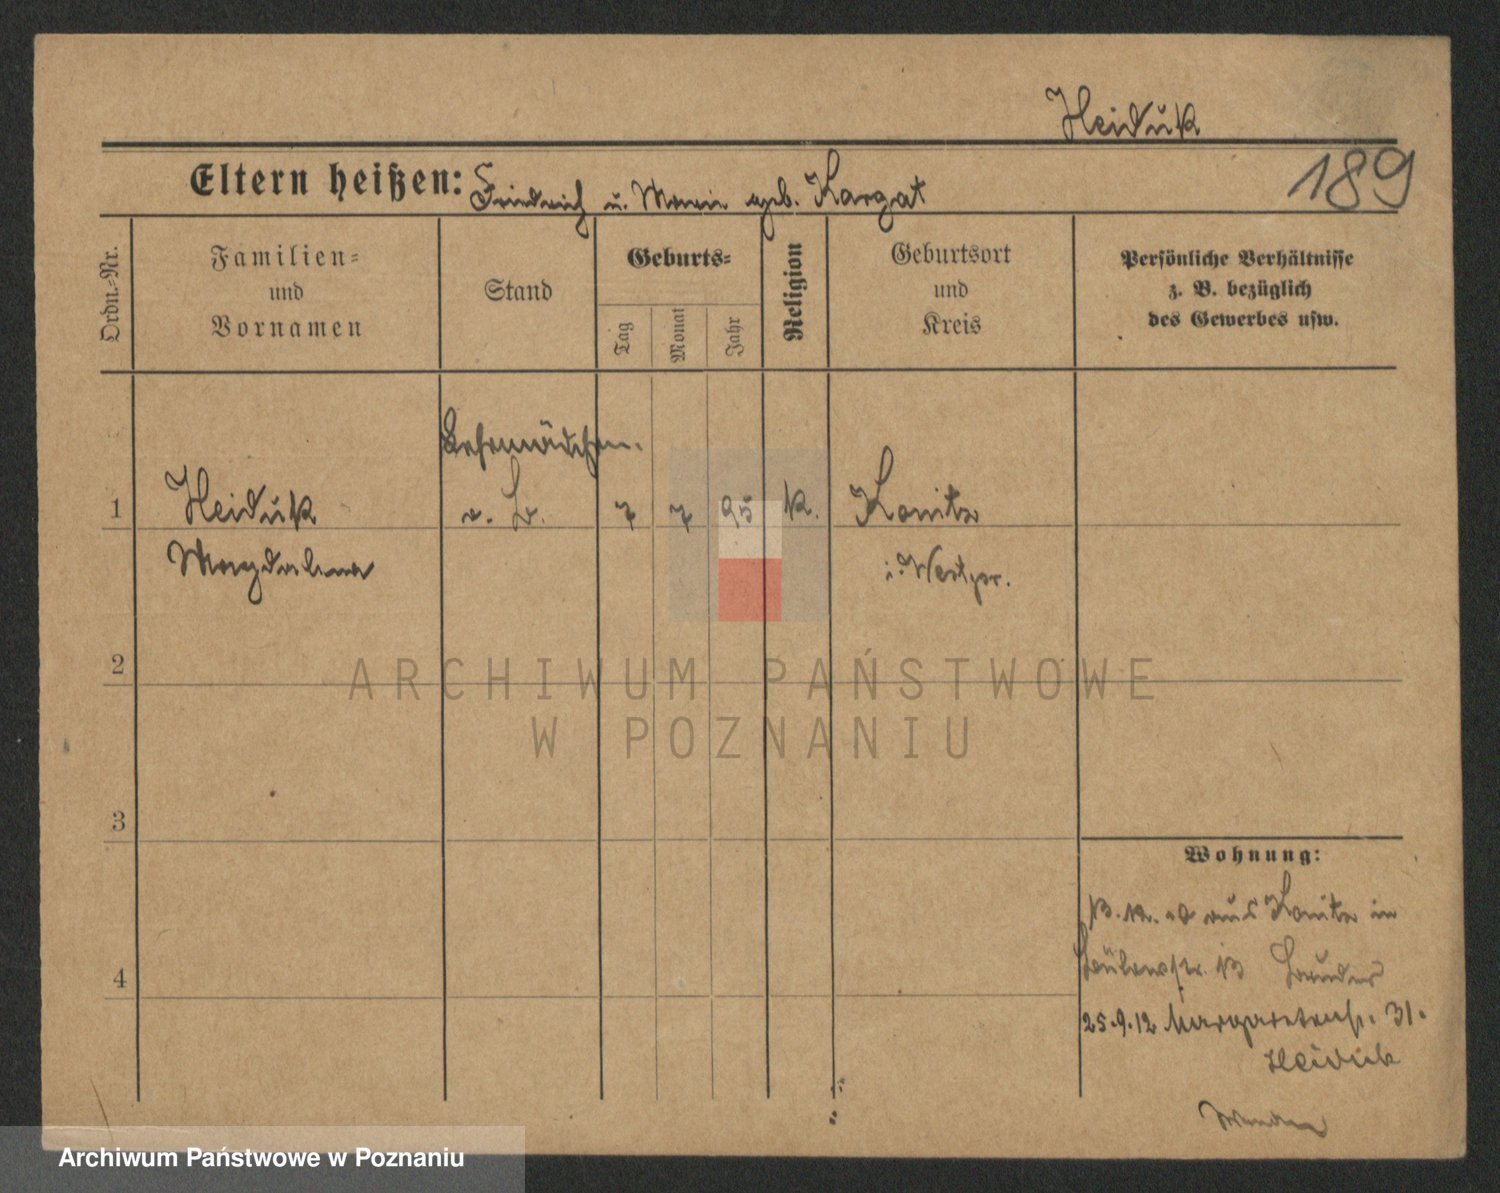 Heiduk
189
Eltern heißen: Friedrich u. Marie geb. Kargat
Ordn.-Nr.
Familien-
und
Vornamen
Stand
Geburts-
Tag
Monat
Jahr
Religion
Geburtsort
und
Kreis
Persönliche Verhältnisse
z. B. bezüglich
des Gewerbes usw.
Lehrmädchen.
1 Heiduk 7 7 95 k. Konitz
Magdalena i. Westpr.
2
3
4
Wohnung:
aus Konitz in
Bülowstr. 13
25.9.12 Margaretenstr. 31.
Heiduk
ARCHIWUM PAŃSTWOWE
W POZNANIU
Archiwum Państwowe w Poznaniu